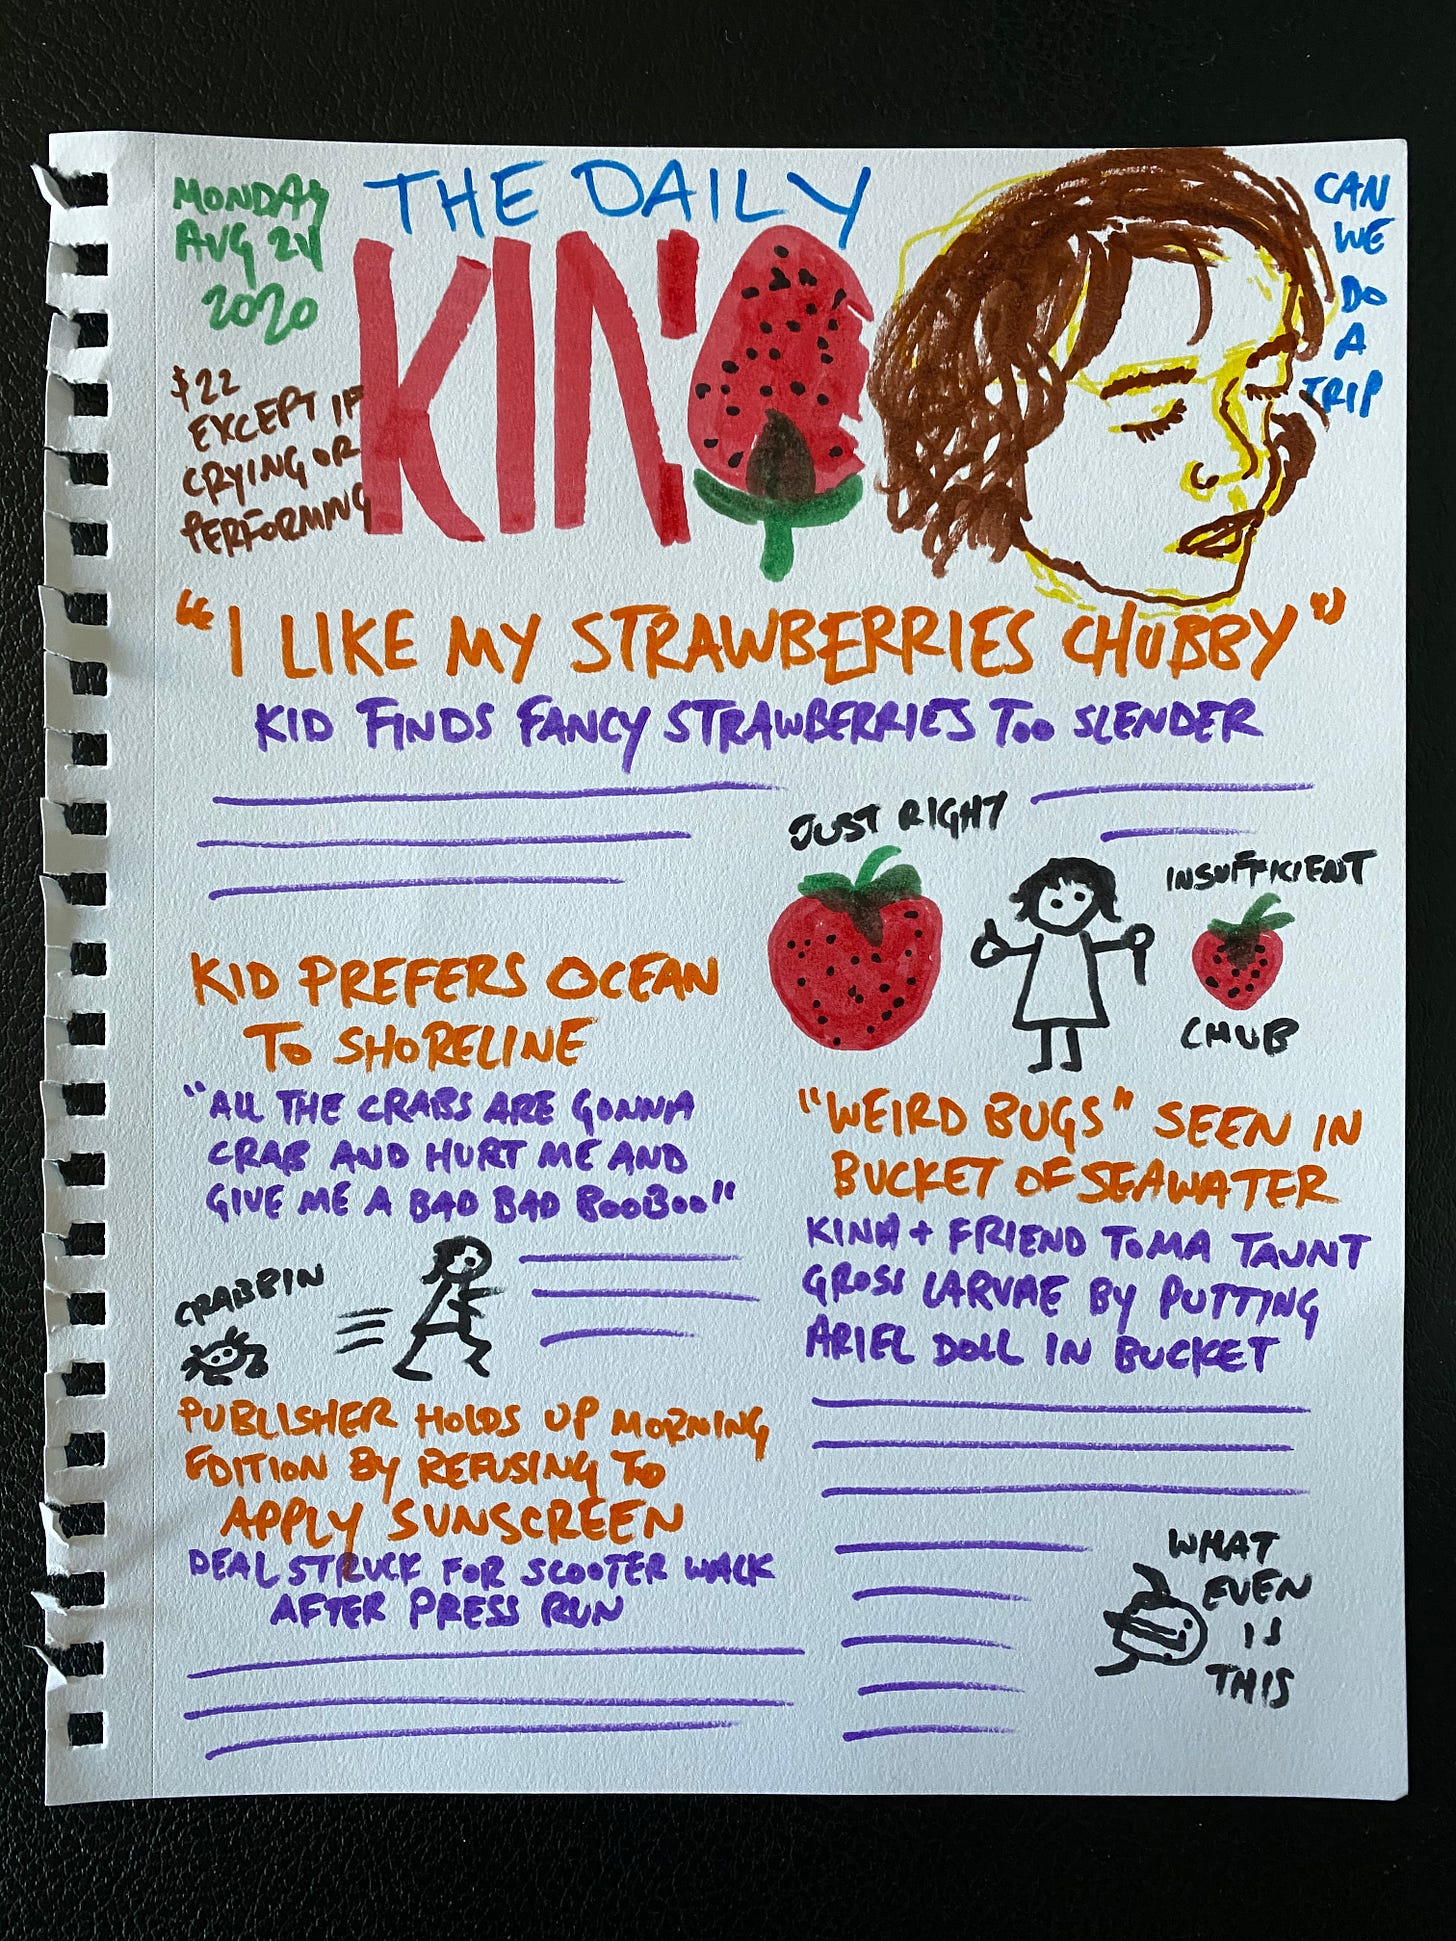 MONDAY
AUG 24
2020
THE DAILY
KINA
CAN
WE
DO
A
TRIP
$22
EXCEPT IF
CRYING OR
PERFORMING
"I LIKE MY STRAWBERRIES CHUBBY"
KID FINDS FANCY STRAWBERRIES TOO SLENDER
JUST RIGHT
INSUFFICIENT
CHUB
KID PREFERS OCEAN
TO SHORELINE
"ALL THE CRABS ARE GONNA
CRAB AND HURT ME AND
GIVE ME A BAD BAD BOOBOO"
CRABBIN
PUBLISHER HOLDS UP MORNING
EDITION BY REFUSING TO
APPLY SUNSCREEN
DEAL STRUCK FOR SCOOTER WALK
AFTER PRESS RUN
"WEIRD BUGS" SEEN IN
BUCKET OF SEAWATER
KINA + FRIEND TOMA TAUNT
GROSS LARVAE BY PUTTING
ARIEL DOLL IN BUCKET
WHAT
EVEN
IS
THIS